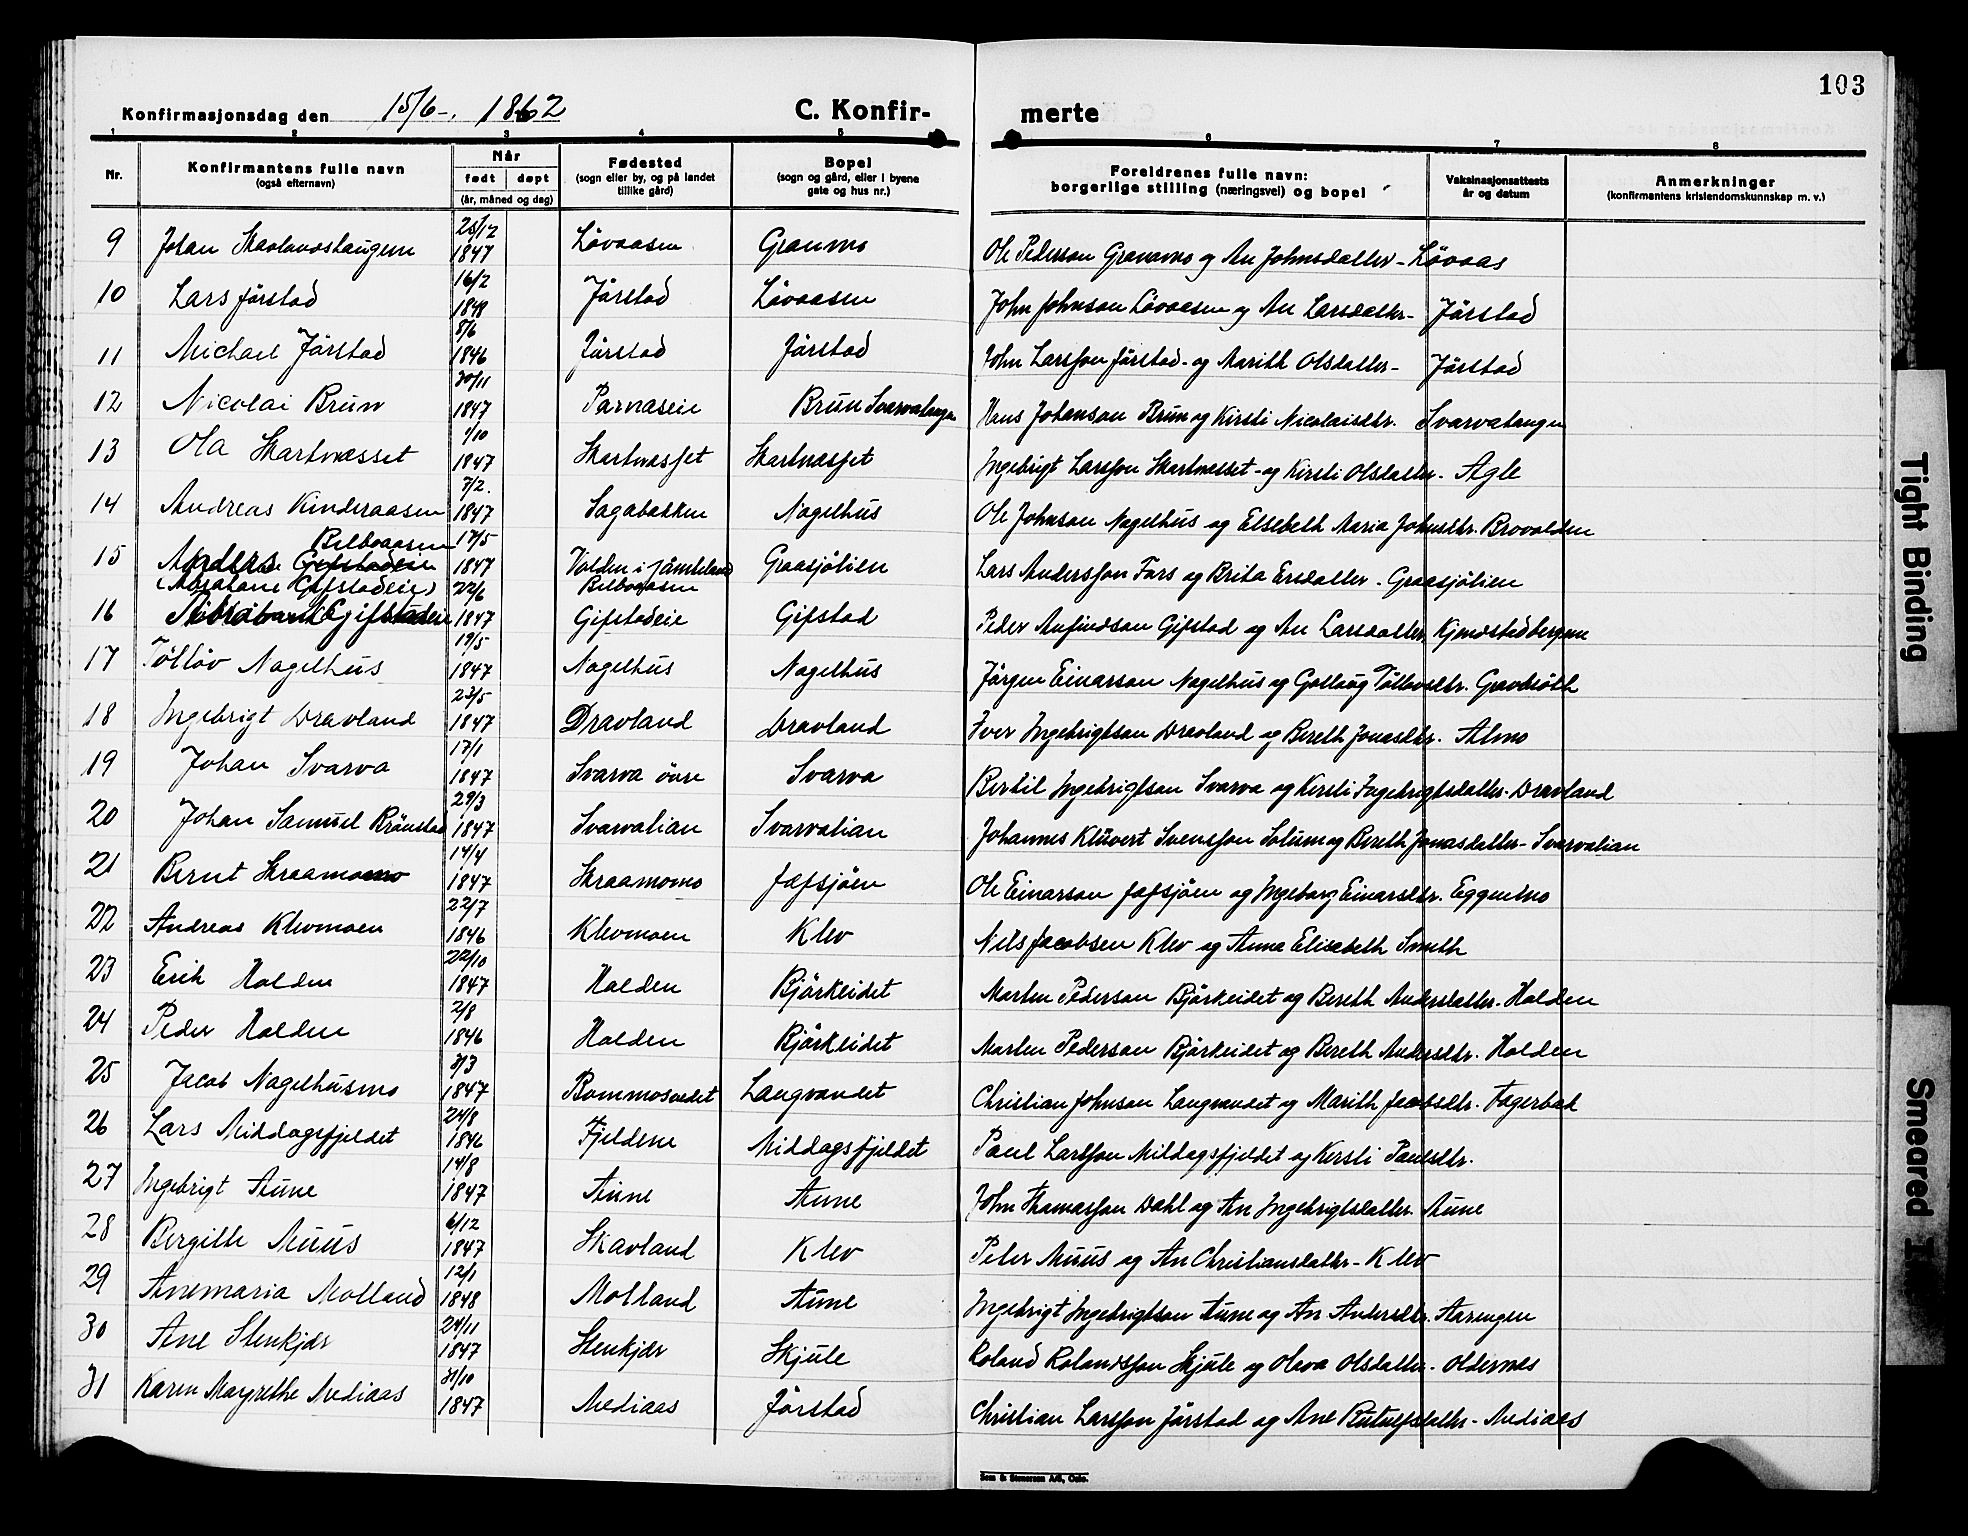 103
Konfirmasjonsdag den 15/6-. 1862 C. Konfir- merte
1 2 3 4 5 6 7 8
Nr.
Konfirmantens fulle navn
(også efternavn)
Når
født døpt
(år, måned og dag)
Fødested
(sogn eller by, og på landet
tillike gård)
Bopel
(sogn og gård, eller i byene
gate og hus nr.)
Foreldrenes fulle navn:
borgerlige stilling (næringsvei) og bopel
Vaksinasjonsattests
år og datum
Anmerkninger
(konfirmantens kristendomskunnskap m. v.)
9 Johan Skavlandshaugene 25/12 1847 Løvaasen Granmo Ole Pederson Granamo og An Johnsdatter - Løvaas
10 Lars Jårstad 16/2 1848 Jårstad Løvaasen John Johnson Løvaasen og An Larsdatter- Jårstad
11 Michael Jårstad 8/6 1846 Jårstad Jårstad John Larsson Jårstad - og Marith Olsdatter - Jårstad
12 Nicolai Brun 30/11 1847 Parnaseie Brun Svarvatangen Hans Johanson Brun og Kirsti Nicolaisdtr. Svarvatangen
13 Ola Skartnesset 1/10 1847 Skartnesset Skartnesset Ingebrigt Larsson Skartnesset - og Kirsti Olsdatter. Agle
14 Andreas Kinderaasen 7/2. 1847 Sagabakken Nagelhus Ole Johnson Nagelhus og Elsebeth Maria Johnsdtr. Brovolden
15 Anders Gifstadeie Belboaasen 17/5 1847 Volden i Jämteland Belboaasen Graasjölien Lars Andersson Fars og Brita Ersdatter - Graasjölien
(Abraham Gifstadeie)
16 Gifstadeie 22/6 1847 Gifstadeie Gifstad Peder Anfindson Gifstad og An Larsdatter Kjendstadbergene
17 Tølløv Nagelhus 19/5 1847 Nagelhus Nagelhus Jørgen Einarson Nagelhus og Gollaug Tøllovsdtr. Gravbröth
18 Ingebrigt Dravland 23/5 1847 Dravland Dravland Iver Ingebrigtson Dravland og Bereth Jonasdtr. Almo
19 Johan Svarva 17/1 1847 Svarva övre Svarva Bertil Ingebrigtson Svarva og Kersti Ingebrigtsdatter - Dravland
20 Johan Samuel Krönstad 29/3 1847 Svarvalian Svarvalian Johannes Klüvert Svensson Solum og Bereth Jonasdatter - Svarvalian
21 Bernt Skraamomo 14/4 1847 Skraamomo Jæfsjöen Ole Einarson Jæfsjöen og Ingeborg Einarsdtr. Eggenmo
22 Andreas Klevmoen 22/7 1846 Klevmoen Klev Nils Jacobsen Klev og Anna Elisabeth Smith
23 Erik Holden 22/10 1847 Holden Björkeidet Morten Pederson Björkeidet og Bereth Andersdatter - Holden
24 Peder Holden 2/8 1846 Holden Björkeidet Morten Pederson Björkeidet og Bereth Andersdtr. Holden
25 Jacob Nagelhusmo 3/3 1847 Bommosvedet Langvandet Christian Johnson Langvandet og Marith Jacobsdtr. Fagerbek
26 Lars Middagsfjeldet 24/8 1846 Fjeldene Middagsfjeldet Paul Larsson Middagsfjeldet og Kersti Paulsdtr.
27 Ingebrigt Aune 14/8 1847 Aune Aune John Thomasson Dahl og An Ingebrigtsdatter. Aune
28 Bergitte Muus 6/12 1847 Skavland Klev Peter Muus og An Christiansdatter - Klev
29 Anemaria Molland 12/1 1848 Molland Aune Ingebrigt Ingebrigtson Aune og An. Andersdtr. Aarengen
30 Ane Stenkjær 24/11 1847 Stenkjær Skjule Roland Rolandsson Skjule og Olava Olsdatter - Oldernes
31 Karen Margrethe Mediaas 31/10 1847 Mediaas Jårstad Christian Larsson Jårstad og Ane Rutulfsdatter - Mediaas
Sem & Stenersen A/S, Oslo.
Tight Binding
Smeared